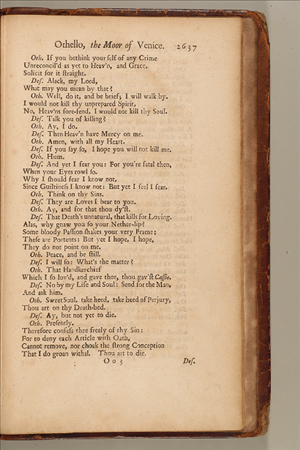 Othello, the Moor of Venice. 2637
Oth. If you bethink your self of any Crime
Unreconcil'd as yet to Heav'n, and Grace,
Solicit for it straight.
Des. Alack, my Lord,
What may you mean by that?
Oth. Well, do it, and be brief; I will walk by.
I would not kill thy unprepared Spirit,
No, Heav'ns fore-fend, I would not kill thy Soul.
Des. Talk you of killing?
Oth. Ay, I do.
Des. Then Heav'n have Mercy on me.
Oth. Amen, with all my Heart.
Des. If you say so, I hope you will not kill me.
Oth. Hum.
Des. And yet I fear you: For you're fatal then,
When your Eyes rowl so.
Why I should fear I know not,
Since Guiltiness I know not: But yet I feel I fear.
Oth. Think on thy Sins.
Des. They are Loves I bear to you.
Oth. Ay, and for that thou dy'st.
Des. That Death's unnatural, that kills for Loving.
Alas, why gnaw you so your Nether-lip?
Some bloody Passion shakes your very Frame:
These are Portents: But yet I hope, I hope,
They do not point on me.
Oth. Peace, and be still.
Des. I will so: What's the matter?
Oth. That Handkerchief
Which I so lov'd, and gave thee, thou gav'st Cassio.
Des. No by my Life and Soul: Send for the Man,
And ask him.
Oth. Sweet Soul, take heed, take heed of Perjury,
Thou art on thy Death-bed.
Des. Ay, but not yet to die.
Oth. Presently.
Therefore confess thee freely of thy Sin:
For to deny each Article with Oath,
Cannot remove, nor choak the strong Conception
That I do groan withal. Thou art to die.
O o 5 Des.